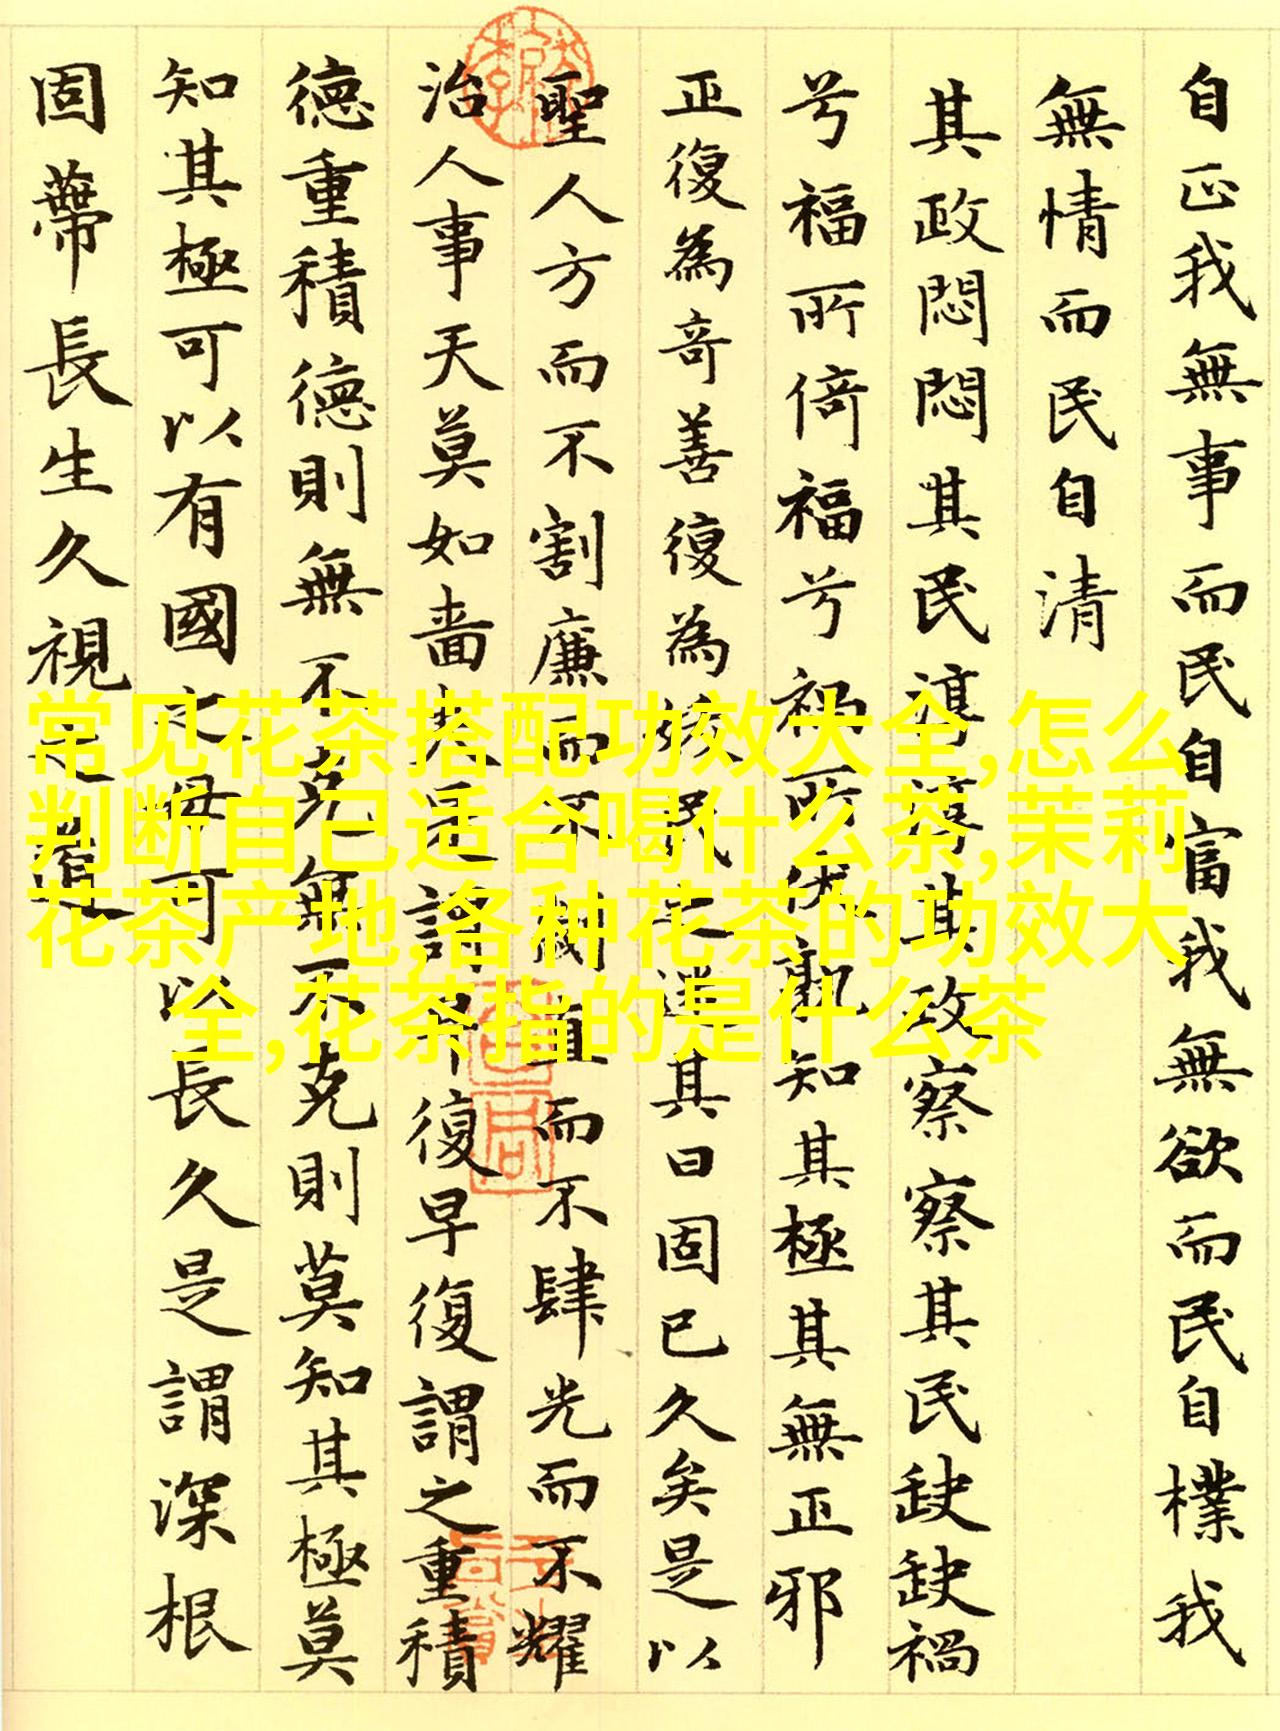 自正我無事而民自富我無欲而民自樸我
無情而民自清
其政悶悶其民淳淳其政察察其民缺缺禍
兮福所倚福兮禍所伏孰知其極其無正邪
正復為奇善復為妖民之迷其日固已久矣是以
聖人方而不割廉而不劌直而不肆光而不耀
治人事天莫如嗇夫是謂早復早復謂之重積
德重積德則無不克無不克則莫知其極莫
知其極可以有國之母可以長久是謂深根
固蔕長生久視之道
常见花茶搭配功效大全,怎么
判断自己适合喝什么茶,茉莉
花茶产地,各种花茶的功效大
全,花茶指的是什么茶